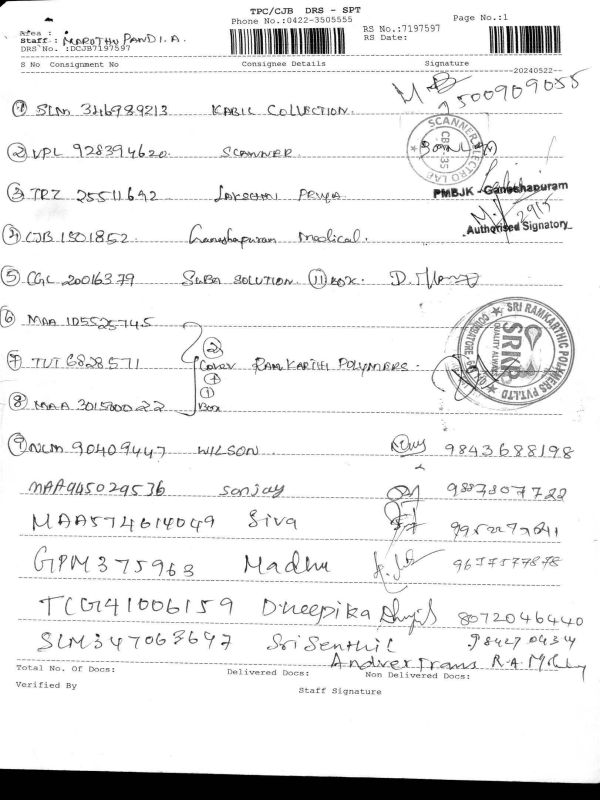 TPC/CJB DRS - SPT
Phone No.:0422-3505555 Page No.:1
Area :
Staff : MAROTHU PANDI. A. RS No.:7197597
DRS No. :DCJB7197597 RS Date:
S No Consignment No Consignee Details Signature
20240522
7500909055
① SLM 346989213 KABIL COLLECTION.
② VPL 928394620 SCANNER
SCANNER ELECTRO
③ TRZ 25511642 LAKSHMI PRIYA
PMBJK - Ganeshapuram
④ CJB 1501852 Ganeshapuram Medical.
Authorised Signatory
⑤ CGL 20016379 SUBA SOLUTION. ⑪ BOX.
⑥ MAA 105525745
②
⑦ TUT 6828571 Cover RAMKARTHI POLYMERS.
+
①
SRI RAMKARTHIC POLYMERS PVT.LTD COIMBATORE
SRKP
QUALITY ALWAYS
⑧ MAA 301500022 Box
⑨ NLM 90409447 WILSON. 9843688198
MAA945029536 Sanjay
MAA574614049 Siva
GPM375963 Madhu 9657577878
TCG41006159 Dheepika 8072046440
SLM347063647 Sri Senthil
Andver Trans
Total No. Of Docs: Delivered Docs: Non Delivered Docs:
Verified By Staff Signature